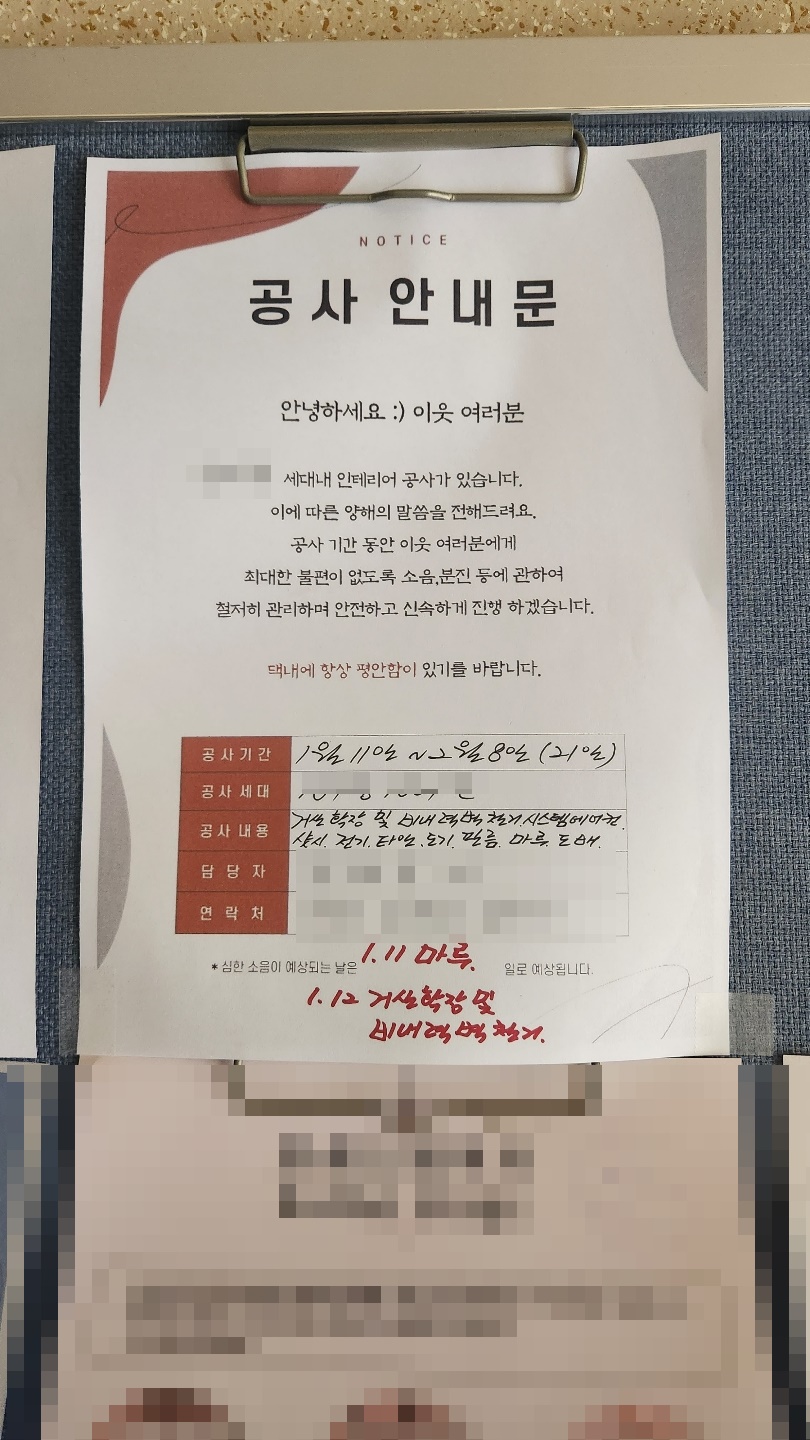 NOTICE
공사 안내문
안녕하세요 :) 이웃 여러분
세대내 인테리어 공사가 있습니다.
이에 따른 양해의 말씀을 전해드려요.
공사 기간 동안 이웃 여러분에게
최대한 불편이 없도록 소음,분진 등에 관하여
철저히 관리하며 안전하고 신속하게 진행 하겠습니다.
댁내에 항상 평안함이 있기를 바랍니다.
공사기간 1월 11일 ~ 2월 8일 (21일)
공사 세대
공사 내용 거실확장 및 비내력벽 철거. 시스템에어컨.
샷시. 전기. 타일. 도기. 필름. 마루. 도배.
담 당 자
연 락 처
* 심한 소음이 예상되는 날은 1.11 마루. 일로 예상됩니다.
1.12 거실확장 및
비내력벽 철거.